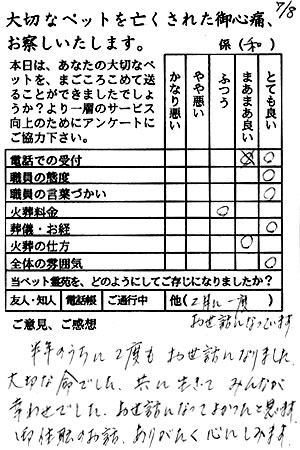 7/8
大切なペットを亡くされた御心痛、
お察しいたします。 係(和)
本日は、あなたの大切なペットを、まごころこめて送ることができましたでしょうか?より一層のサービス向上のためにアンケートにご協力下さい。
かなり悪い
やや悪い
ふつう
まあまあ良い
とても良い
電話での受付
職員の態度
職員の言葉づかい
火葬料金
葬儀・お経
火葬の仕方
全体の雰囲気
当ペット霊苑を、どのようにしてご存じになりましたか?
友人・知人 電話帳 ご通行中 他(2月に一度
お世話になっています
ご意見、ご感想
半年のうちに2度もお世話になりました。
大切な命でした。共に生きて みんなが
幸わせでした。お世話になってよかったと思います
御住職のお話、ありがたく心にしみます。